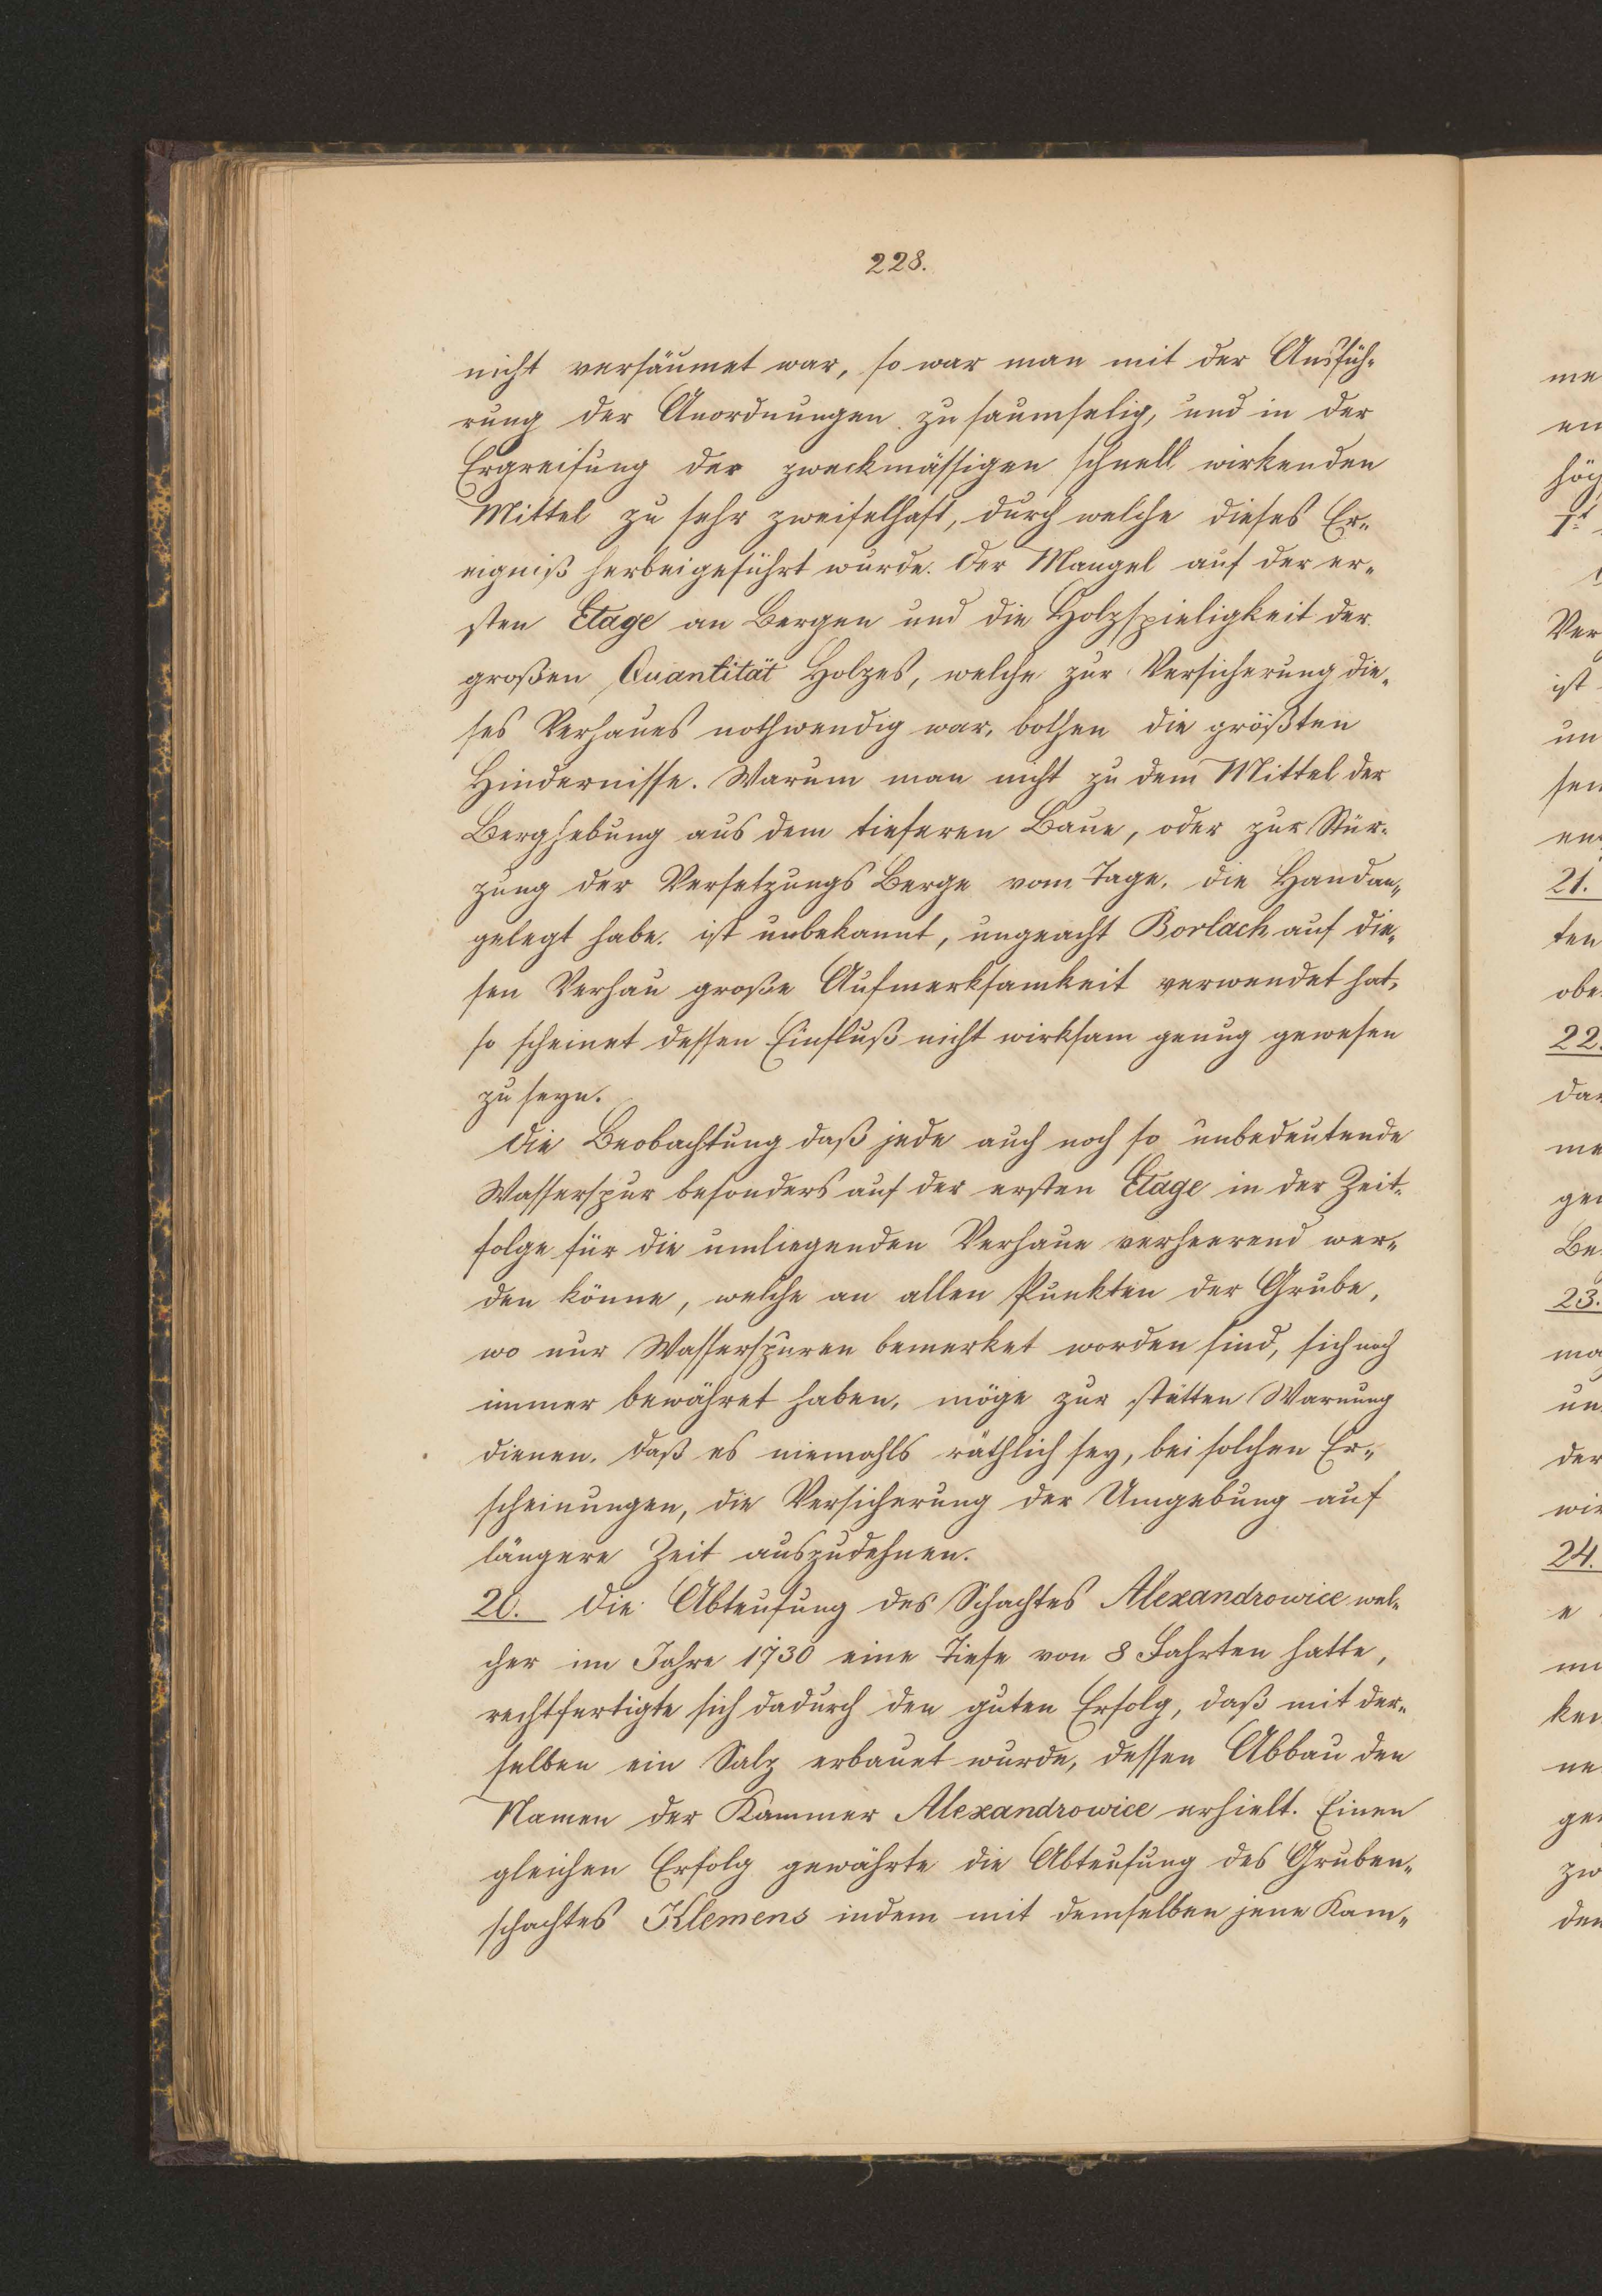 228.
nicht versäumet war, so war man mit der Ausfüh-
rung der Anordnungen zu saumselig, und in der
Ergreifung der zweckmässigen schnell wirkenden
Mittel zu sehr zweifelhaft, durch welche dieses Er-
eigniß herbeigeführt wurde. Der Mangel auf der er-
sten Etage an Bergen und die Holzspieligkeit der
großen Quantität Holzes, welche zur Versicherung die-
ses Verhaues nothwendig war, bothen die größten
Hindernisse. Warum man nicht zu dem Mittel der
Berghebung aus dem tieferen Baue, oder zur Stür-
zung der Versetzungs Berge vom Tage, die Handan-
gelegt habe, ist unbekannt, ungeacht Borlach auf die-
sen Verhau große Aufmerksamkeit verwendet hat,
so scheinet dessen Einfluß nicht wirksam genug gewesen
zu seyn.
Die Beobachtung daß jede auch noch so unbedeutende
Wasserspur besonders auf der ersten Etage in der Zeit-
folge für die umliegenden Verhaue verheerend wer-
den könne, welche an allen Punkten der Grube,
wo nur Wasserspuren bemerket worden sind, sich noch
immer bewähret haben, möge zur stätten Warnung
dienen, daß es niemahls räthlich sey, bei solchen Er-
scheinungen, die Versicherung der Umgebung auf
längere Zeit auszudehnen.
20. Die Abteufung des Schachtes Alexandrowice wel-
cher im Jahre 1730 eine Tiefe von 8 Fahrten hatte,
rechtfertigte sich dadurch den guten Erfolg, daß mit der-
selben ein Salz erbauet wurde, dessen Abbau den
Namen der Kammer Alexandrowice erhielt. Einen
gleichen Erfolg gewährte die Abteufung des Gruben-
schachtes Klemens indem mit demselben jene Kam-
me
en
höch
Ver
ist
un
sen
21.
ten
obe
22.
dar
me
ge
Be
23.
ma
un
der
wir
24.
e
ken
ne
ge
zw
den